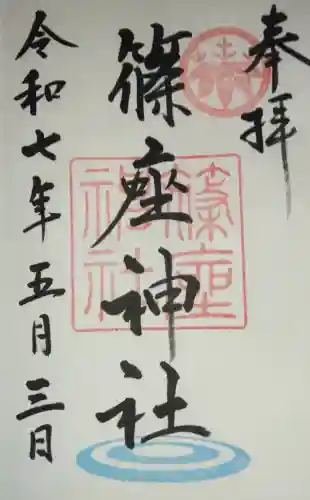 奉拝
篠座神社
篠座神社
令和七年五月三日